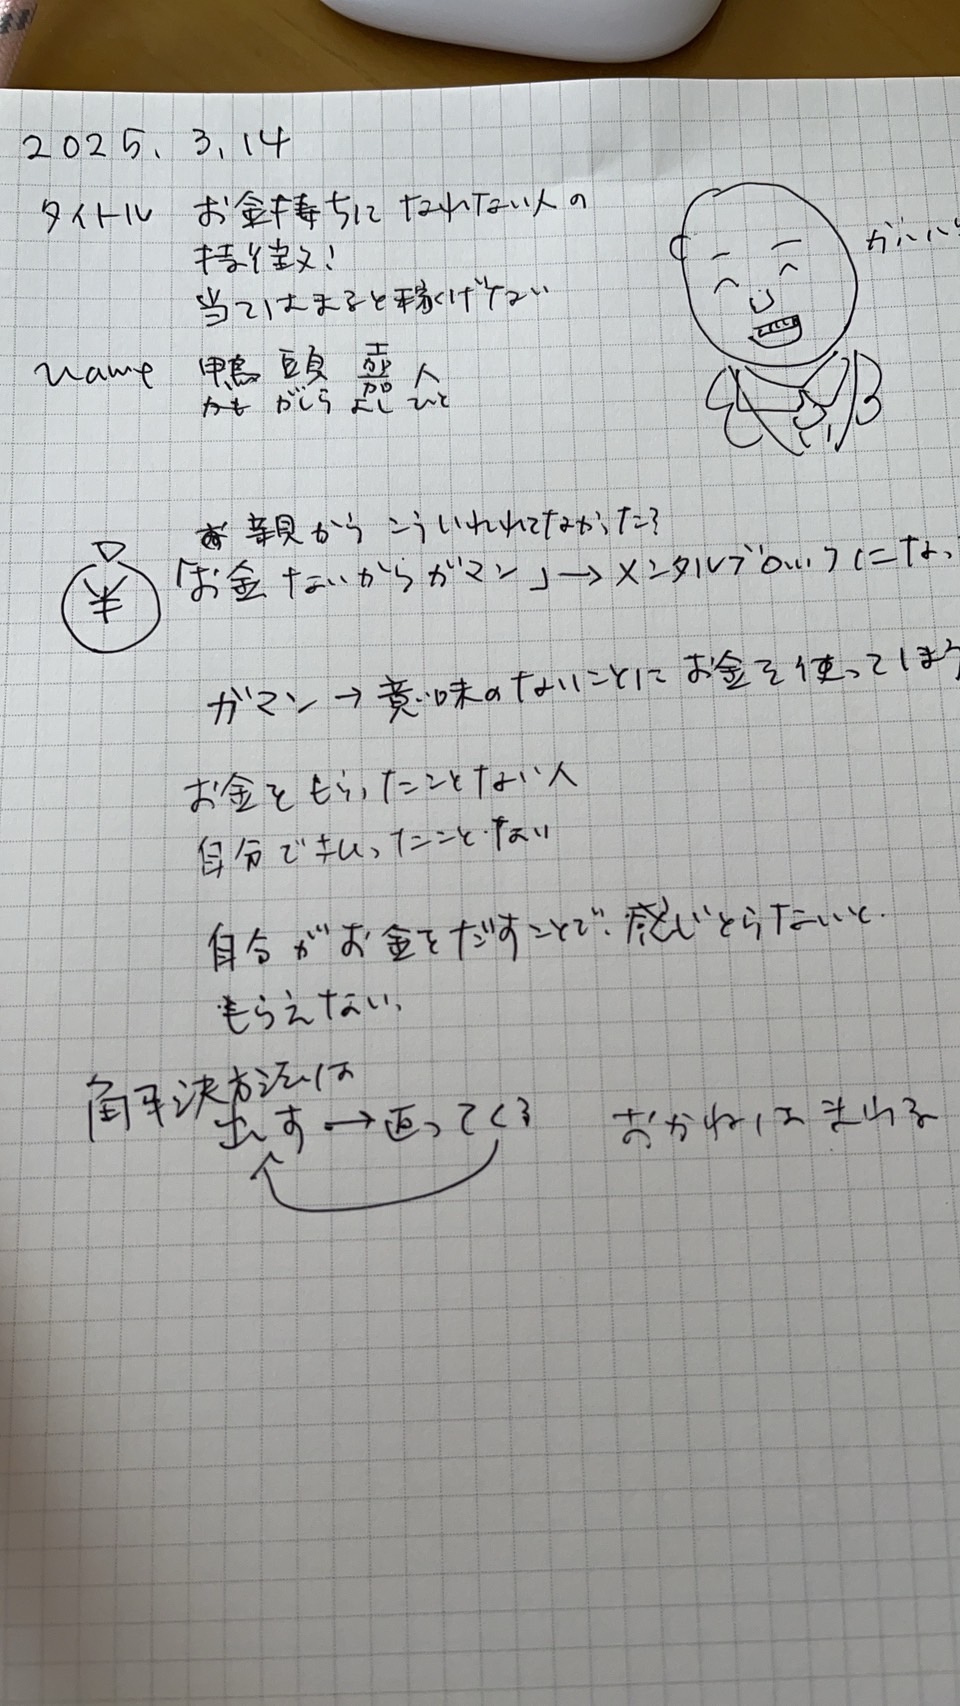 2025. 3. 14
タイトル お金持ちになれない人の
特徴!
当てはまると稼げない
Name 鴨頭嘉人
かも がしら よし ひと
ガハハハ
親からこういわれてなかった?
¥
「お金ないからガマン」→メンタルブロックになっ
ガマン→意味のないことにお金を使ってしまう
お金をもらったことない人
自分で払ったことない
自分がお金をだすことで、感じとらないと
もらえない、
解決方法は
出す→返ってくる おかねはまわる